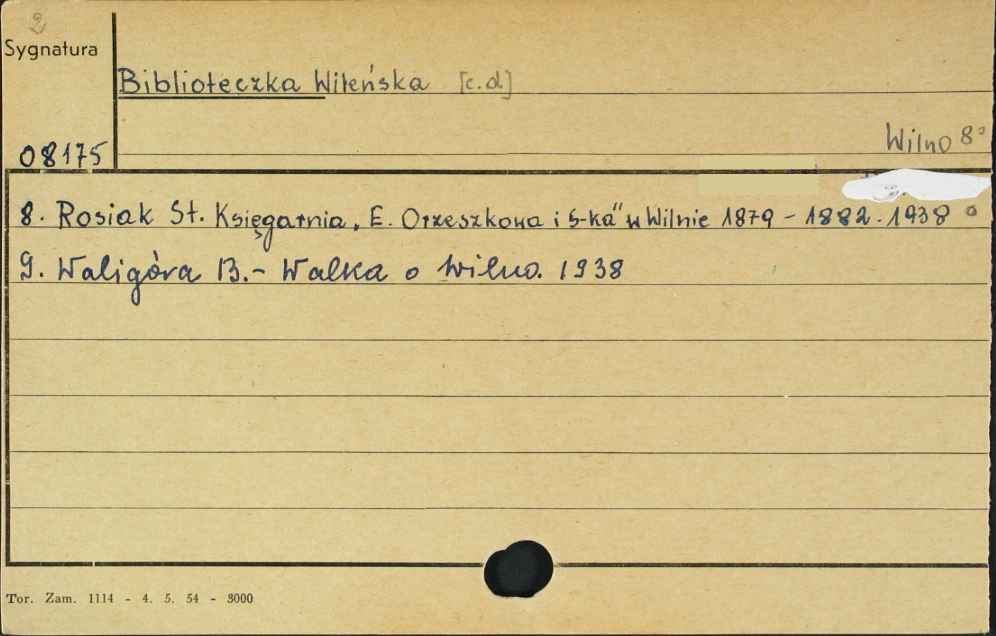 2
Sygnatura
Biblioteczka Wileńska [c.d]
Wilno 8°
08175
8. Rosiak St. Księgarnia „E. Orzeszkowa i S-ka" w Wilnie 1879 - 1882. 1938
9. Waligóra B. - Walka o Wilno. 1938
Tor. Zam. 1114 - 4. 5. 54 - 3000